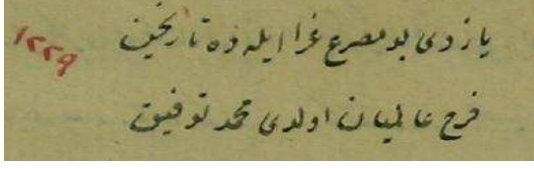 یازدی بو مصرع غرا ایله ده تاریخین ١٢٢٩
فرح عالمیان اولدی محمد توفیق